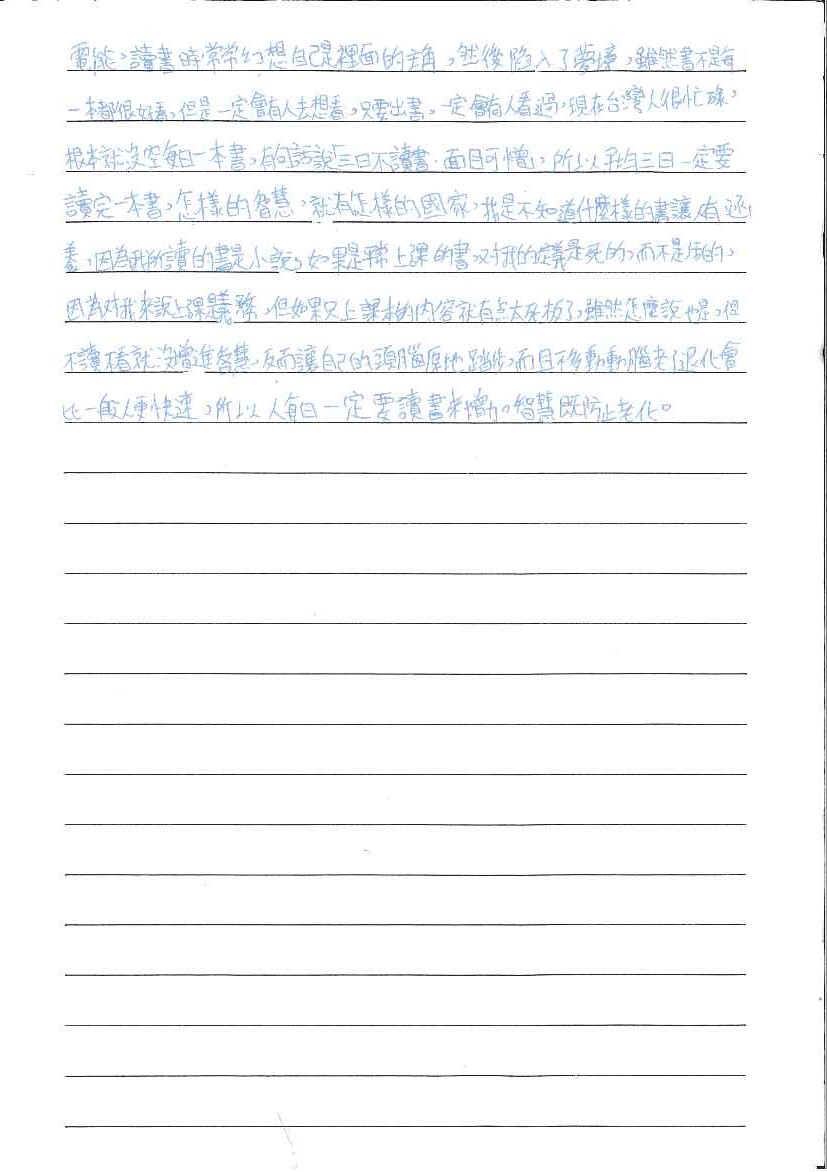 電能，讀書時常常幻想自己是裡面的主角，然後陷入了夢境，雖然書不是每
一本都很好看，但是一定會有人去想看，只要出書，一定會有人看過，現在台灣人很忙碌，
根本就沒空每日一本書，有句話說「三日不讀書，面目可憎」，所以我每三日一定要
讀完一本書，怎樣的智慧，就有怎樣的國家，我是不知道什麼樣的書讓人有
因為我所讀的書是小說，如果是平常上課的書，對我的定義是死的，而不是活的，
因為對我來說上課是義務，但如果只上課本的內容就有点太死板了，雖然怎麼說也是，但
不讀書就沒增進智慧，反而讓自己的頭腦原地踏步，而且不多動動腦老了退化會
比一般人更快速，所以人每日一定要讀書來增加智慧既防止老化。